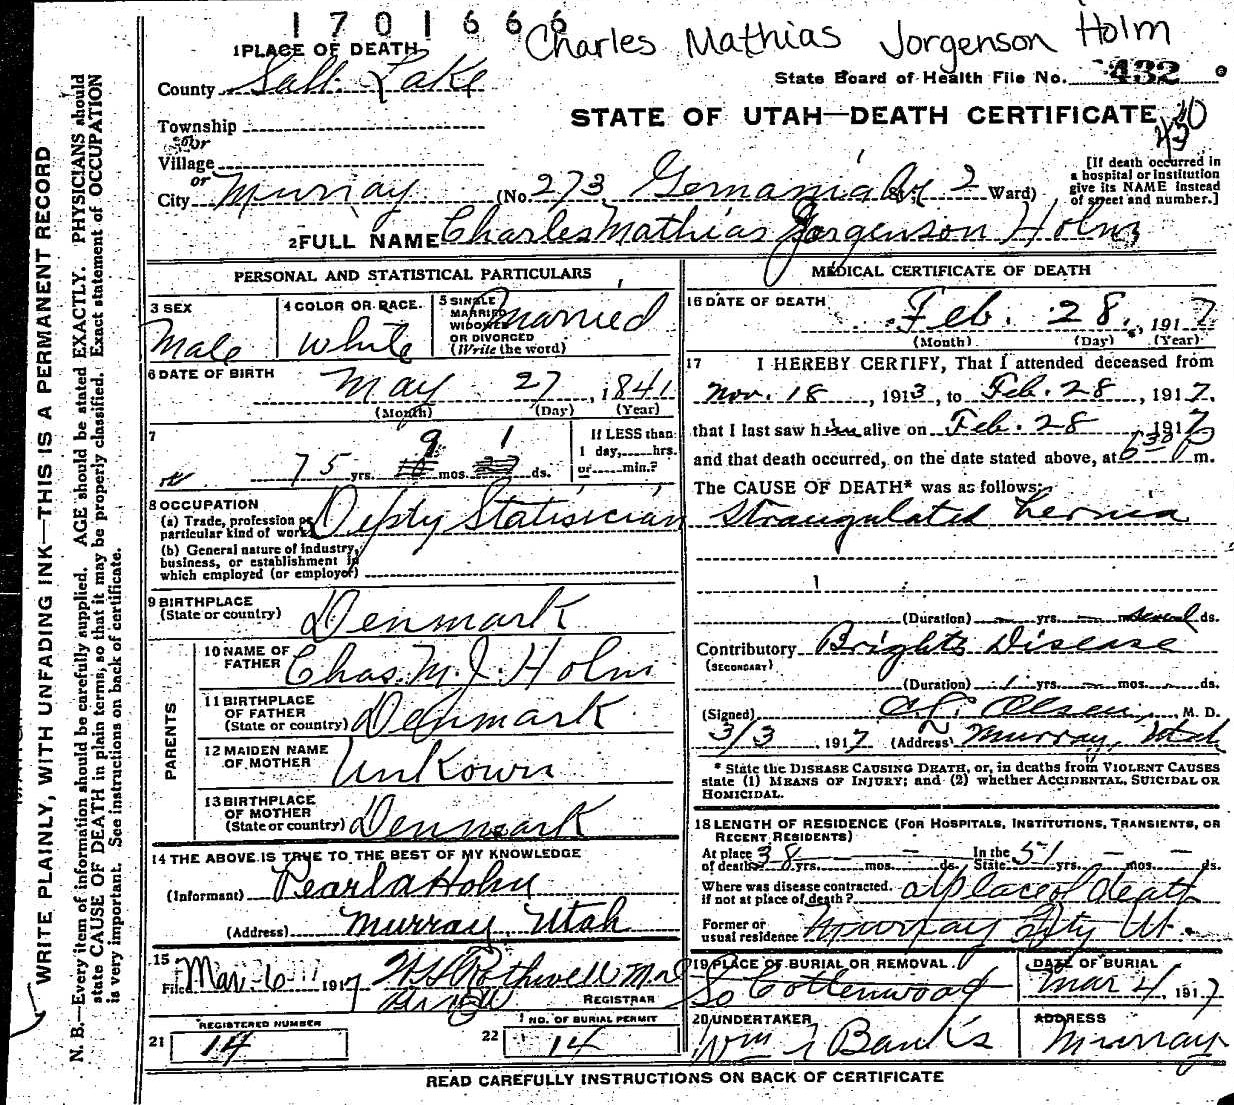 1701666
Charles Mathias Jorgenson Holm
1 PLACE OF DEATH
County Salt Lake
State Board of Health File No. 432
Township
or
Village
or
STATE OF UTAH—DEATH CERTIFICATE
City Murray (No. 273 Gemania Av St; 2 Ward)
[If death occurred in a hospital or institution give its NAME instead of street and number.]
2 FULL NAME Charles Mathias Jorgenson Holm
PERSONAL AND STATISTICAL PARTICULARS
3 SEX
Male
4 COLOR OR RACE.
White
5 SINGLE MARRIED WIDOWED OR DIVORCED (Write the word)
Married
6 DATE OF BIRTH
May 27, 1841
(Month) (Day) (Year)
7
75 yrs. 9 mos. 1 ds.
If LESS than 1 day, hrs. or min.?
8 OCCUPATION
(a) Trade, profession or particular kind of work Depty Statisician
(b) General nature of industry, business, or establishment in which employed (or employer)
9 BIRTHPLACE
(State or country) Denmark
PARENTS
10 NAME OF FATHER Chas. M. J. Holm
11 BIRTHPLACE OF FATHER (State or country) Denmark
12 MAIDEN NAME OF MOTHER Unkown
13 BIRTHPLACE OF MOTHER (State or country) Denmark
14 THE ABOVE IS TRUE TO THE BEST OF MY KNOWLEDGE
(Informant) Pearl a Holm
(Address) Murray, Utah
15
Filed Mar 6 1917
Rothwell M.D
REGISTRAR
REGISTERED NUMBER
21 14
NO. OF BURIAL PERMIT
22 14
MEDICAL CERTIFICATE OF DEATH
16 DATE OF DEATH
Feb. 28, 1917
(Month) (Day) (Year)
17 I HEREBY CERTIFY, That I attended deceased from
Nov. 18, 1913, to Feb. 28, 1917,
that I last saw him alive on Feb. 28 1917
and that death occurred, on the date stated above, at 6 30 P m.
The CAUSE OF DEATH* was as follows:
Strangulated hernia
(Duration) yrs. mos. several ds.
Contributory Brights Disease
(SECONDARY)
(Duration) 1 yrs. mos. ds.
(Signed) Olsen, M. D.
3/3, 1917 (Address) Murray, Utah
* State the DISEASE CAUSING DEATH, or, in deaths from VIOLENT CAUSES state (1) MEANS OF INJURY; and (2) whether ACCIDENTAL, SUICIDAL OR HOMICIDAL.
18 LENGTH OF RESIDENCE (FOR HOSPITALS, INSTITUTIONS, TRANSIENTS, OR RECENT RESIDENTS)
At place of death 38 yrs. — mos. — ds. In the State 51 yrs. — mos. — ds.
Where was disease contracted. if not at place of death? at place of death
Former or usual residence Murray City Ut.
19 PLACE OF BURIAL OR REMOVAL
So Cottenwood
DATE OF BURIAL
Mar 4, 1917
20 UNDERTAKER
Wm Banks
ADDRESS
Murray
READ CAREFULLY INSTRUCTIONS ON BACK OF CERTIFICATE
WRITE PLAINLY, WITH UNFADING INK—THIS IS A PERMANENT RECORD
N. B.—Every item of information should be carefully supplied. AGE should be stated EXACTLY. PHYSICIANS should
state CAUSE OF DEATH in plain terms, so that it may be properly classified. Exact statement of OCCUPATION
is very important. See instructions on back of certificate.